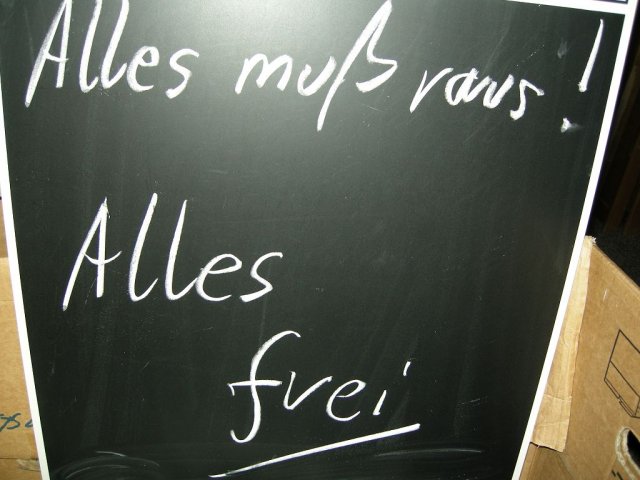 Alles muß raus!
Alles
frei